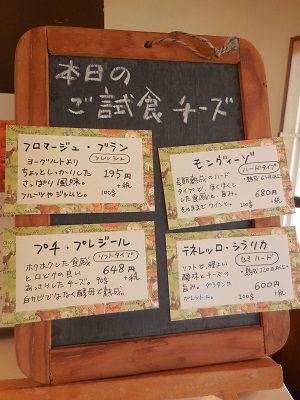 本日の
ご試食チーズ
フロマージュ・ブラン
フレッシュ
ヨーグルトより
ちょっとしっかりした
さっぱり風味。
フルーツやジャムと。
195円
+税
100g
モンヴィーゾ
ハードタイプ
長期熟成のハード
タイプで、ほくほくと
した食感と、旨み。
そのままでワインと。
680円
+税
100g
プチ・プレジール
ソフトタイプ
ホクホクした食感
と口どけの良い
あっさりしたチーズ。
白カビではなく酵母で熟成。
648円
+税
テネレッロ・シラリカ
セミハード
ソフトで、程よい
酸味とチーズの
旨み。グラタンや
ガレットに。
600円
+税
100g